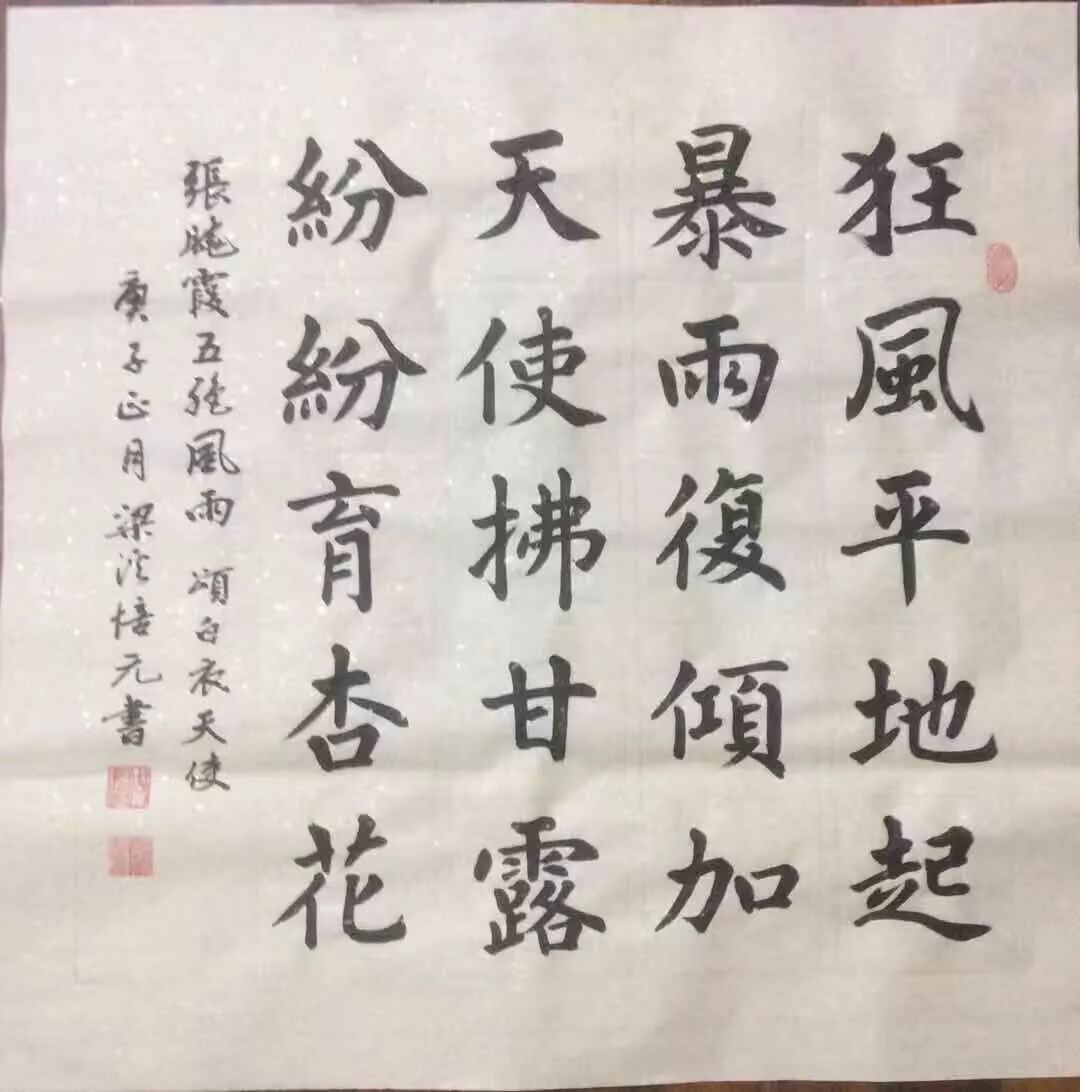 狂風平地起
暴雨復傾加
天使拂甘露
紛紛育杏花
張曉霞五绝風雨 頌白衣天使
庚子正月梁溪培元書